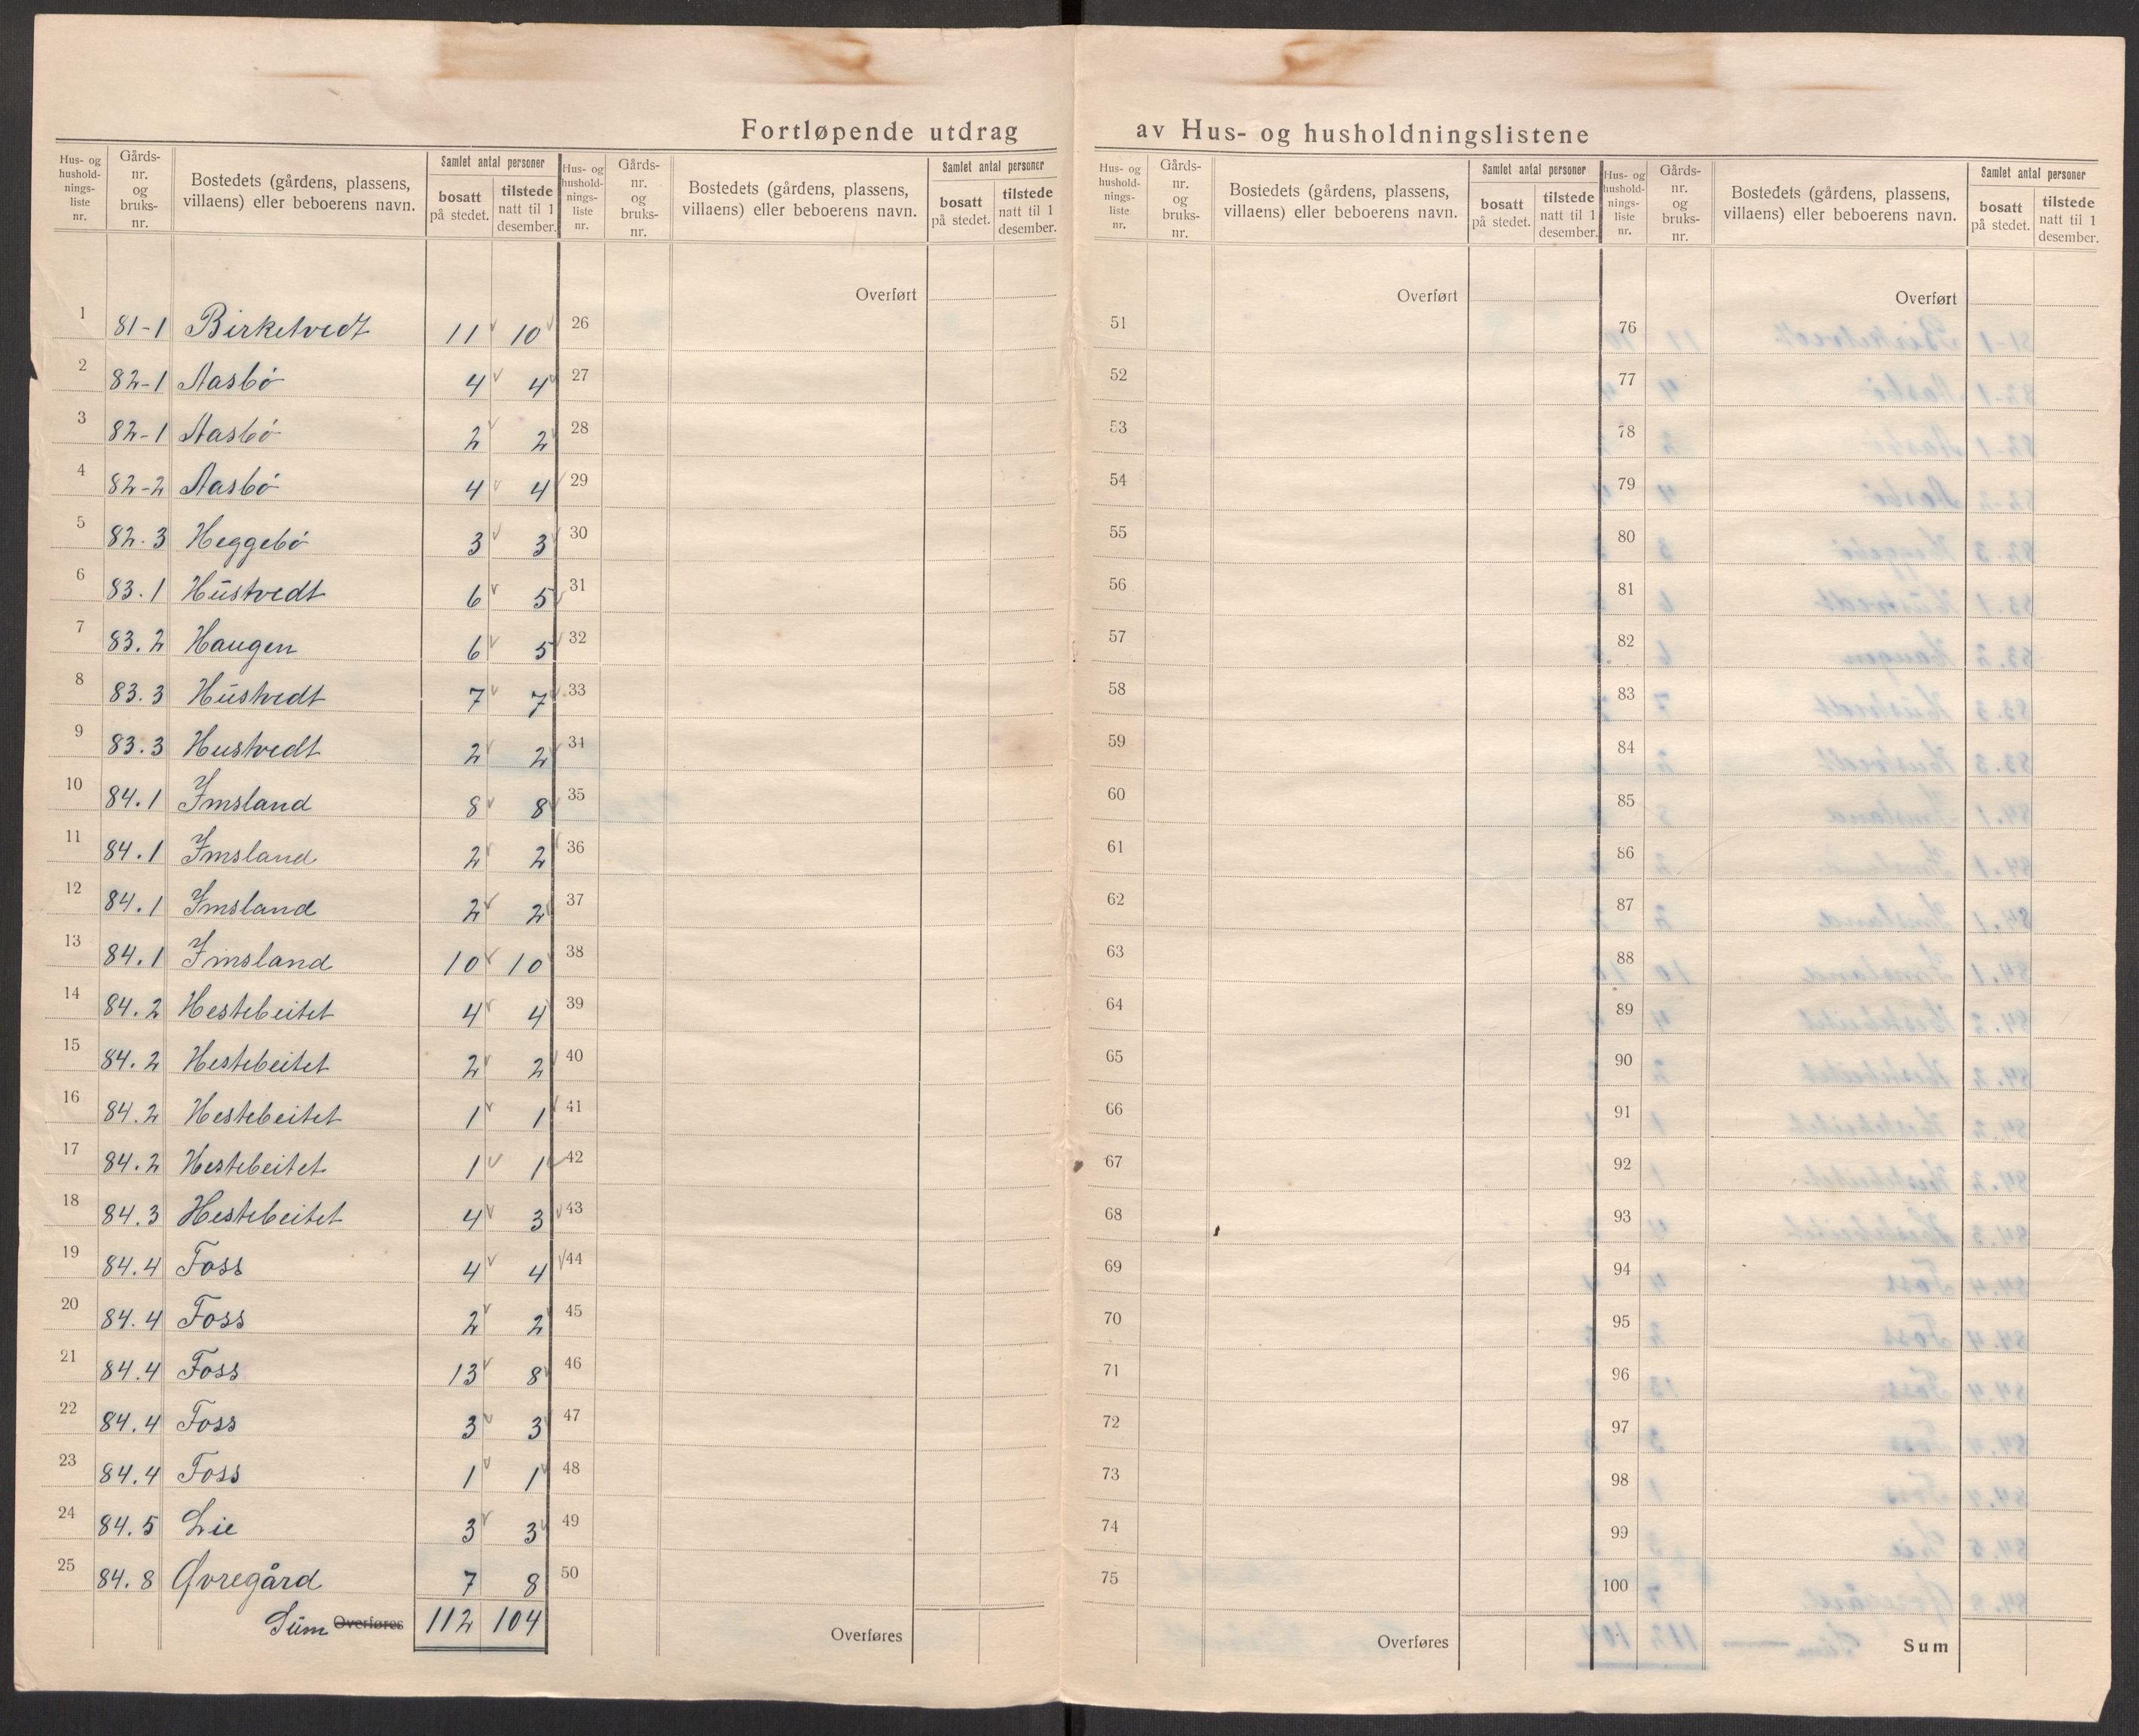 Fortløpende utdrag av Hus- og husholdningslistene
Hus- og husholdningsliste nr. | Gårds- nr. og bruks- nr. | Bostedets (gårdens, plassens, villaens) eller beboerens navn. | Samlet antal personer bosatt på stedet. | tilstede natt til 1 desember.
Hus- og husholdningsliste nr. | Gårds- nr. og bruks- nr. | Bostedets (gårdens, plassens, villaens) eller beboerens navn. | Samlet antal personer bosatt på stedet. | tilstede natt til 1 desember.
Hus- og husholdningsliste nr. | Gårds- nr. og bruks- nr. | Bostedets (gårdens, plassens, villaens) eller beboerens navn. | Samlet antal personer bosatt på stedet. | tilstede natt til 1 desember.
Hus- og husholdningsliste nr. | Gårds- nr. og bruks- nr. | Bostedets (gårdens, plassens, villaens) eller beboerens navn. | Samlet antal personer bosatt på stedet. | tilstede natt til 1 desember.
Overført Overført Overført
1 81-1 Birketvedt 11 10 26 51 76
2 82-1 Aasbø 4 4 27 52 77
3 82-1 Aasbø 2 2 28 53 78
4 82-2 Aasbø 4 4 29 54 79
5 82.3 Heggebø 3 3 30 55 80
6 83.1 Hustvedt 6 5 31 56 81
7 83.2 Haugen 6 5 32 57 82
8 83.3 Hustvedt 7 7 33 58 83
9 83.3 Hustvedt 2 2 34 59 84
10 84.1 Imsland 8 8 35 60 85
11 84.1 Imsland 2 2 36 61 86
12 84.1 Imsland 2 2 37 62 87
13 84.1 Imsland 10 10 38 63 88
14 84.2 Hestebeitet 4 4 39 64 89
15 84.2 Hestebeitet 2 2 40 65 90
16 84.2 Hestebeitet 1 1 41 66 91
17 84.2 Hestebeitet 1 1 42 67 92
18 84.3 Hestebeitet 4 3 43 68 93
19 84.4 Foss 4 4 44 69 94
20 84.4 Foss 2 2 45 70 95
21 84.4 Foss 13 8 46 71 96
22 84.4 Foss 3 3 47 72 97
23 84.4 Foss 1 1 48 73 98
24 84.5 Lie 3 3 49 74 99
25 84.8 Øvregård 7 8 50 75 100
Sum Overføres 112 104 Overføres Overføres Sum